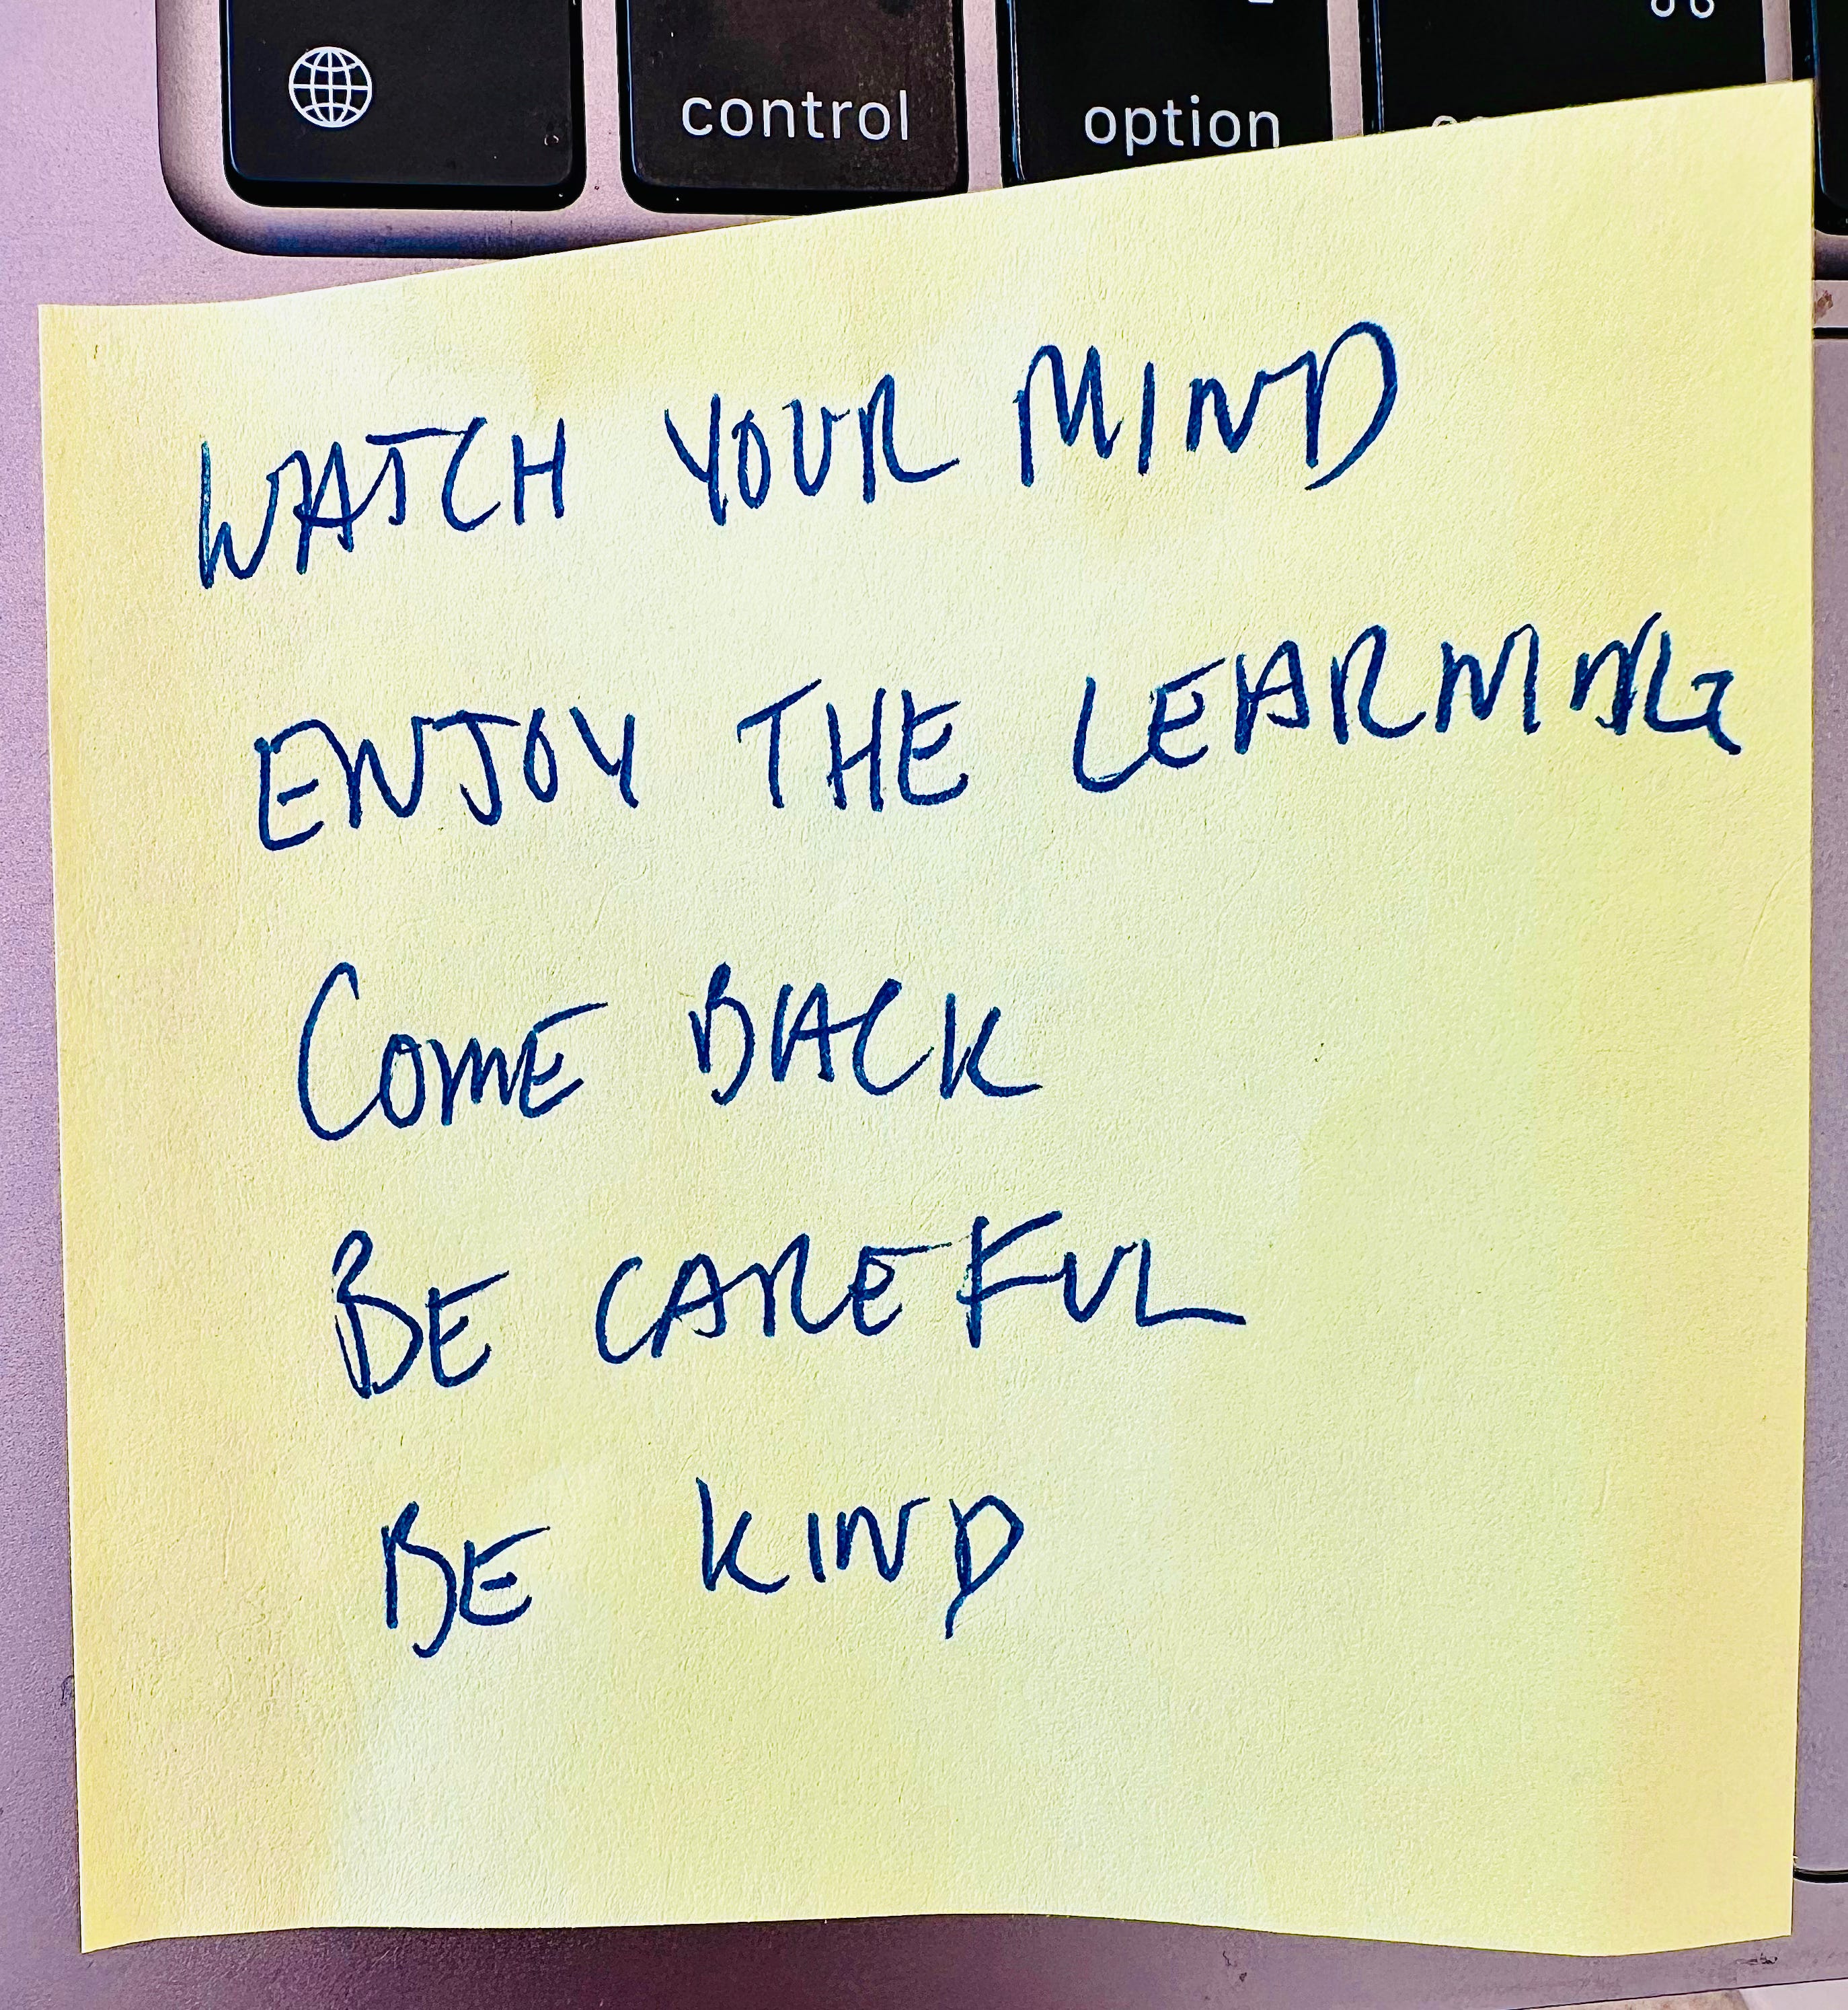 control option
WATCH YOUR MIND
ENJOY THE LEARNING
COME BACK
BE CAREFUL
BE KIND